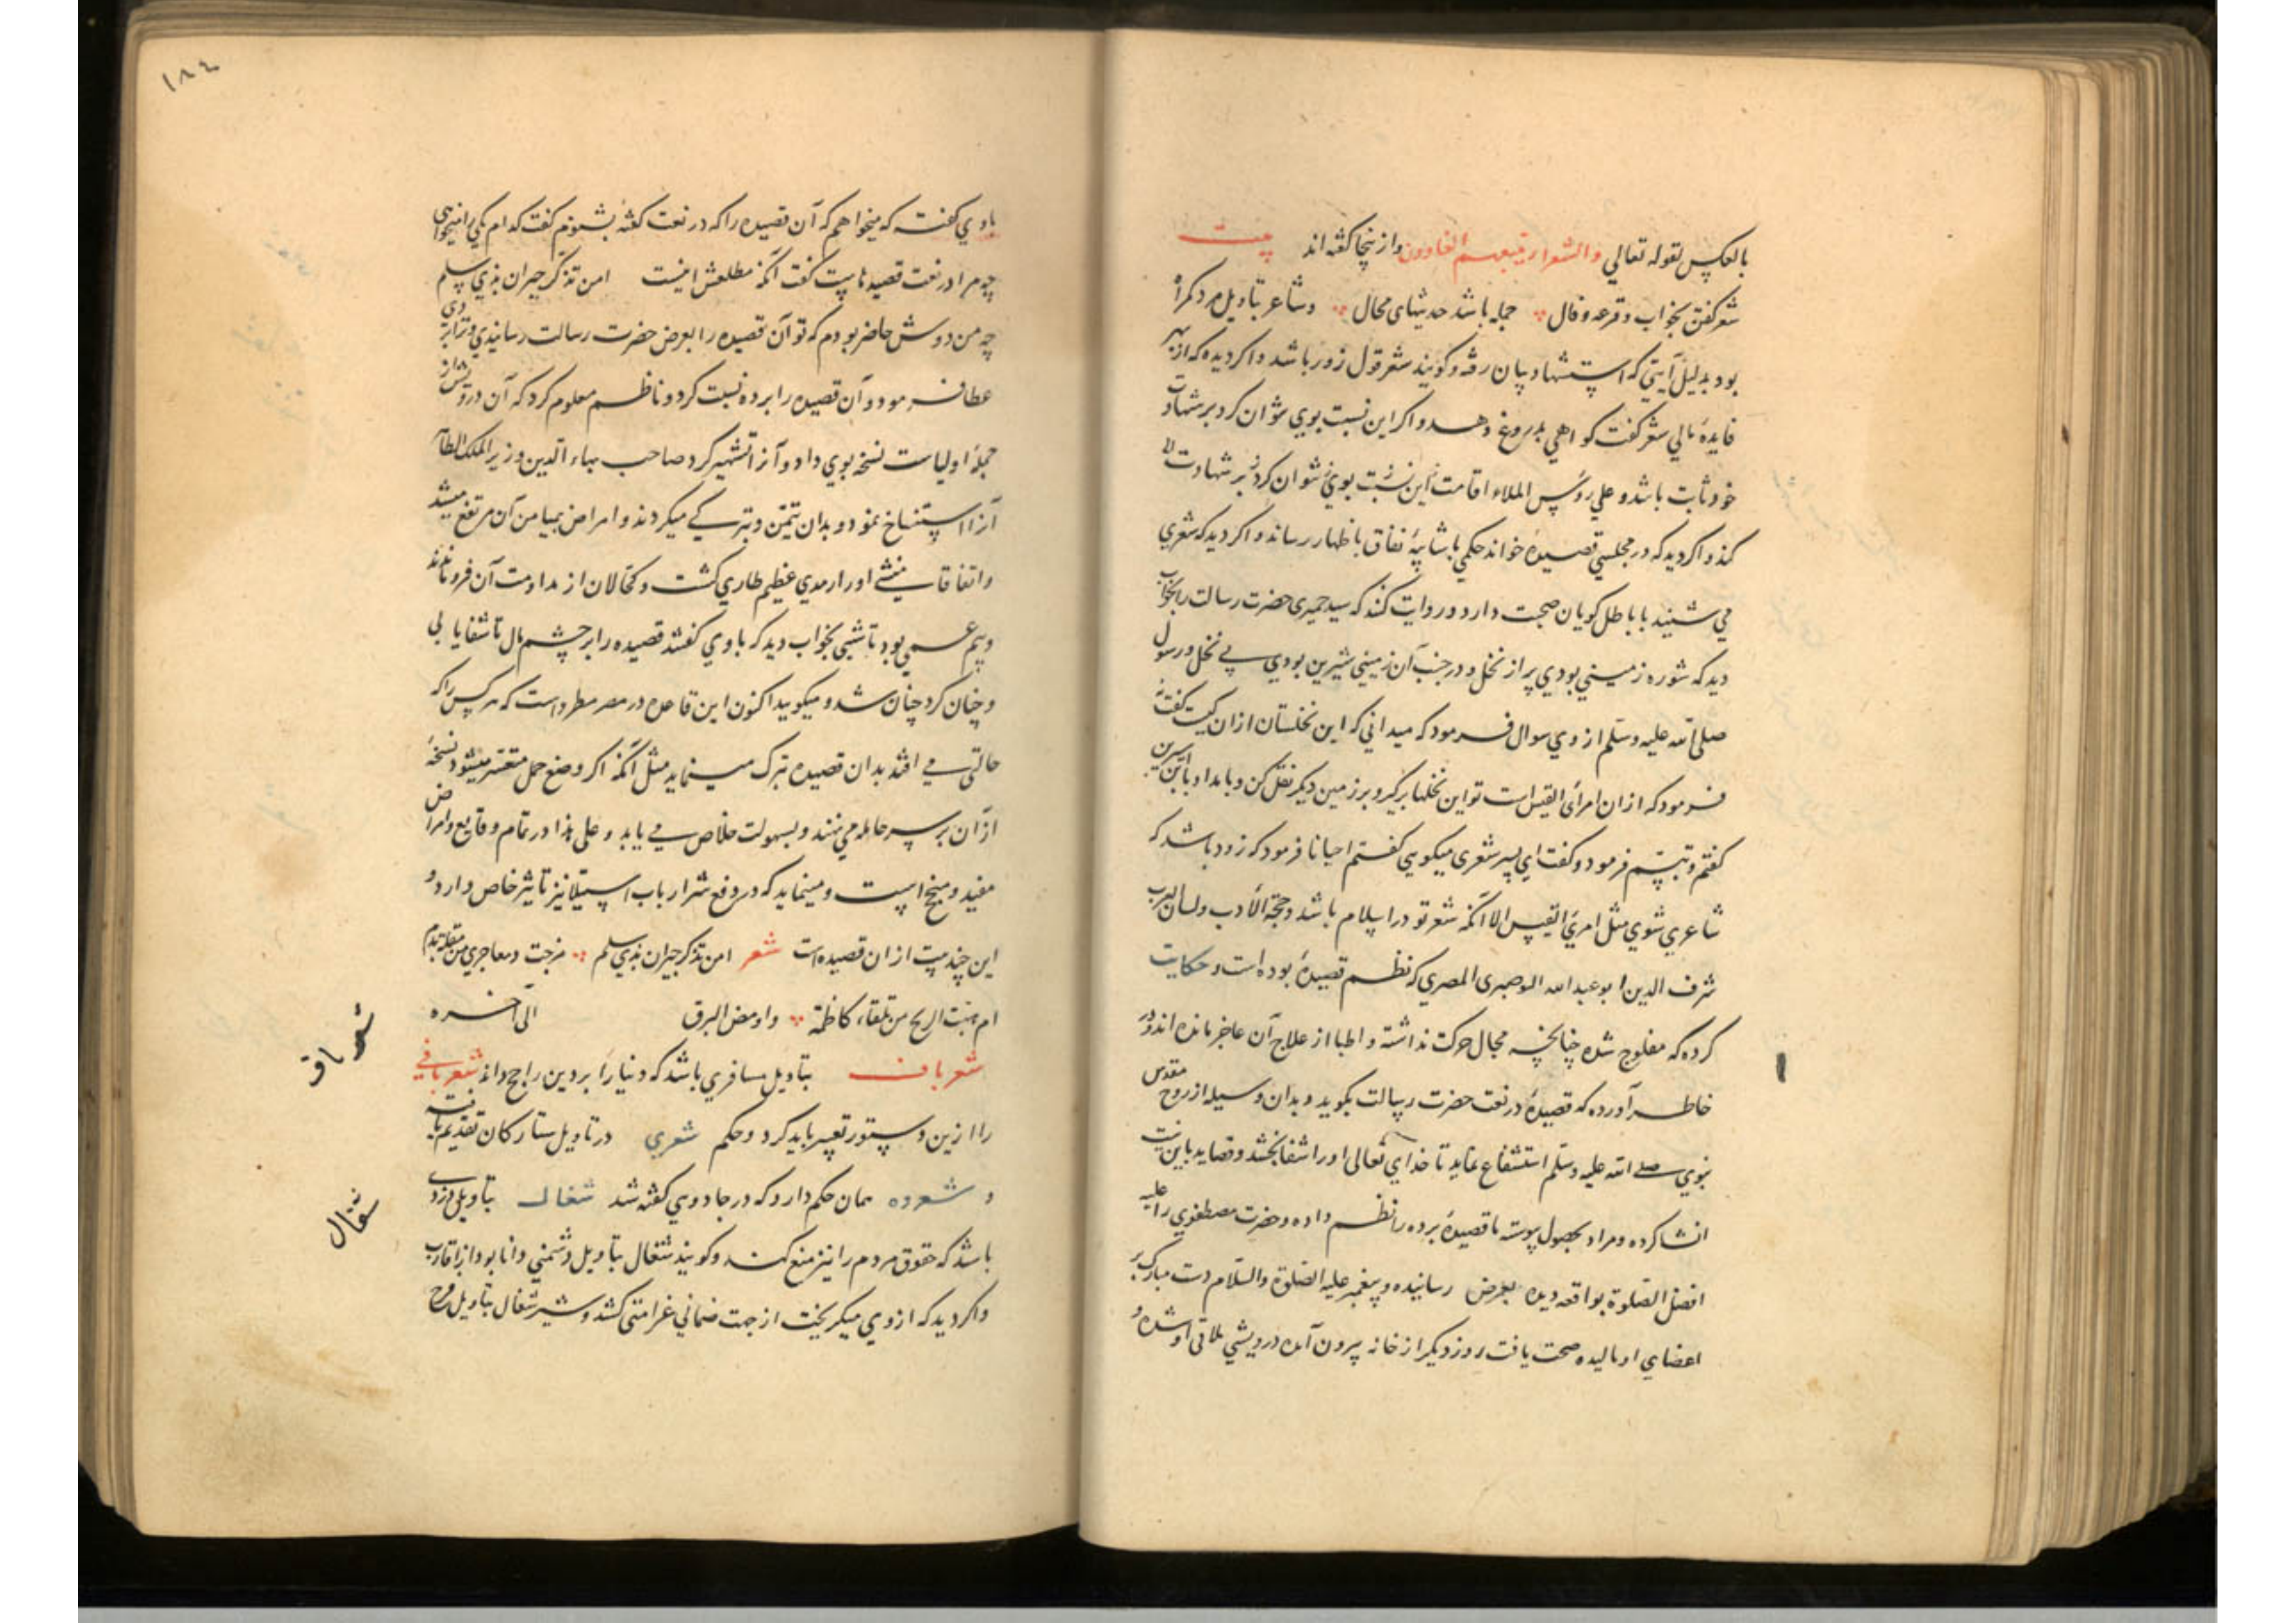 بالعکس لقوله تعالي والشعراء يتبعهم الغاوون وازينجا کفته اند بيت
شعر کفتن بخواب و قرعه و فال جمله باشد حديثهای محال وشاعر بتاويل مرد کمراه
بود بدليل آيتي که استشهاد بيان رفته و کويند شعر قول زور باشد واکر ديد که از بهر
فايدهٔ مالي شعر کفت کواهي بدروغ دهد واکر اين نسبت بوي نتوان کرد بر شهادت
خود ثابت باشد و علي رؤس الملاء اقامت اين نسبت بوي نتوان کرد بر شهادت
کند واکر ديد که در مجلسي قصيدهٔ خواند حکمي باشايبهٔ نفاق باظهار رساند واکر ديد که شعري
مي شنيد با باطل کويان صحبت دارد و روايت کنند که سيد حميری حضرت رسالت را بخواب
ديد که شوره زميني بودي پر از نخل و در جنب آن زميني شيرين بودي بي نخل و رسول
صلی الله عليه وسلم از وي سوال فرمود که ميداني که اين نخلستان ازان کيست کفته
فرمود که ازان امرأی القيس است تو اين نخلها برکير و بر زمين ديکر نقل کن و بامداد بابن سيرين
کفتم و تبسم فرمود و کفت ای پسر شعری ميکويي کفتم احيانا فرمود که زود باشد که
شاعري شوي مثل امرئ القيس الا آنکه شعر تو در اسلام باشد و حجة الأدب ولسان العرب
شرف الدين ابو عبد الله البوصيری المصري که نظم قصيدهٔ بوده است و حکايت
کرده که مفلوج شده چنانچه مجال حرکت نداشته و اطبا از علاج آن عاجز مانده اند و در
خاطر آورده که قصيدهٔ در نعت حضرت رسالت بکويد و بدان وسيله از روح مقدس
نبوي صلی الله عليه وسلم استشفاع نمايد تا خداي تعالی او را شفا بخشد و قصايد باين نيت
انشا کرده و مراد بحصول پيوسته تا قصيدهٔ برده را نظم داده و حضرت مصطفوي را عليه
افضل الصلوة بواقعه ديده بعرض رسانيده و پيغمبر عليه الصلوة والسلام دست مبارک بر
اعضاي او ماليده صحت يافت روز ديکر از خانه بيرون آمده درويشي ملاقی او شده و
١٨٤
باوي کفت که ميخواهم که آن قصيده را که در نعت کفتهٔ بشنوم کفت کدام يکي را ميخواهی
چه مرا در نعت قصيدهاست کفت آنکه مطلعش اينست امن تذکر جيران بذي سلم
چه من دوش حاضر بودم که تو آن قصيده را بعرض حضرت رسالت رسانيدي و ترا بردی
عطا فرمود و آن قصيده را برده نسبت کرد و ناظم معلوم کرد که آن درويش از
جملهٔ اولياست نسخه بوي داد و آنرا تشهير کرد صاحب بهاء الدين وزير الملک الظاهر
آنرا استنساخ نمود و بدان تيمّن و تبرک ميکردند و امراض بميامن آن مرتفع ميشد
واتفاقا منشئ او را رمدي عظيم طاري کشت و کحالان از مداومت آن فرو ماندند
وبيم عمي بود تا شبی بخواب ديد که باوي کفتند قصيده را بر چشم مال تا شفا يابی
وچنان کرد چنان شد و ميکويند اکنون اين قاعده در مصر مطرد است که هر کس را که
حالتی می افتد بدان قصيده تبرک مينمايد مثل آنکه اکر وضع حمل متعسر ميشود نسخهٔ
از آن بر سر حامله مي نهند و بسهولت خلاص می يابد و علی هذا در تمام وقايع وامراض
مفيد و منجح است و مينمايد که در دفع شر ارباب استيلا نيز تاثير خاص دارد و
اين چند بيت ازان قصيده است شعر امن تذکر جيران بذي سلم مزجت دمعا جري من مقلة بدم
ام هبت الريح من تلقاء کاظمة واومض البرق الی آخره
شعر باف بتاويل مسافري باشد که دنيا را بر دين راجح داند شعر بافي
را ازين دستور تعبير بايد کرد و حکم شعري در تاويل ستارکان تقديم يافته
و شعوده همان حکم دارد که در جادويی کفته شد شغال بتاويل دزدی
باشد که حقوق مردم را نيز منع کند وکويند شغال بتاويل دشمني دانا بود از اقارب
واکر ديد که از وي ميکريخت از جهت ضماني غرامتی کشد و شير شغال بتاويل
شعر باف
شغال